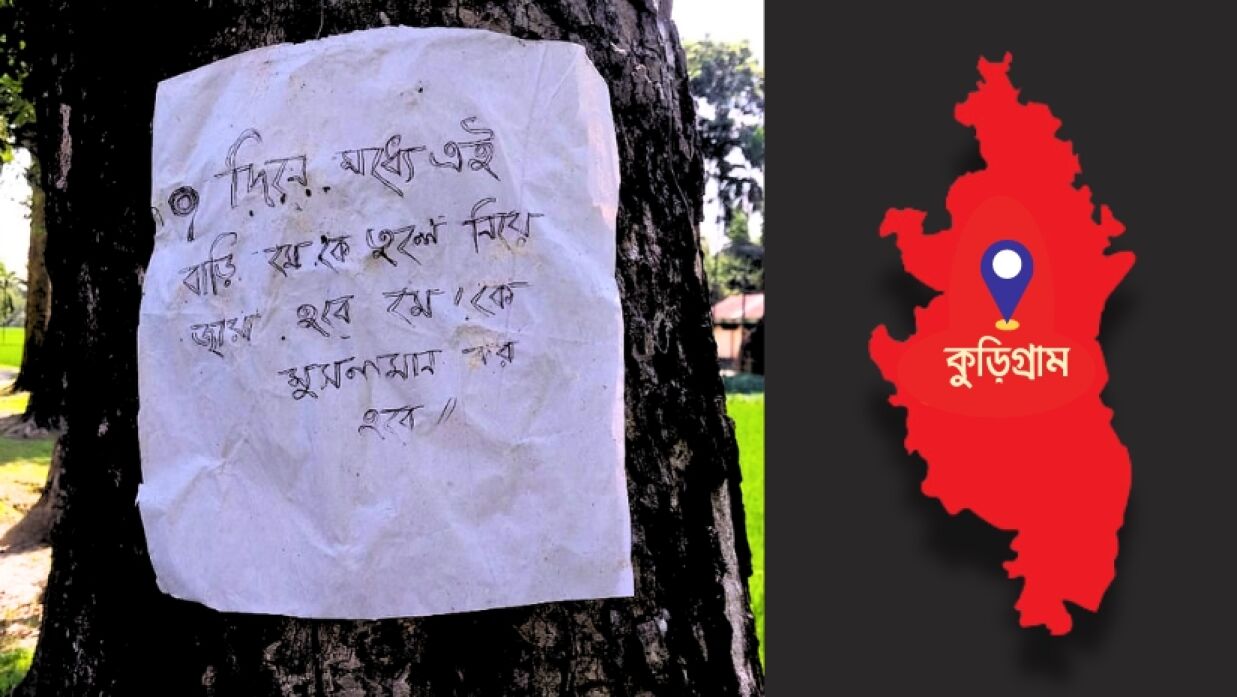 দিনে. মধ্যে এই
বাড়ি তুলে নিয়ে
হবে
মুসলমান কর
হবে//
কুড়িগ্রাম